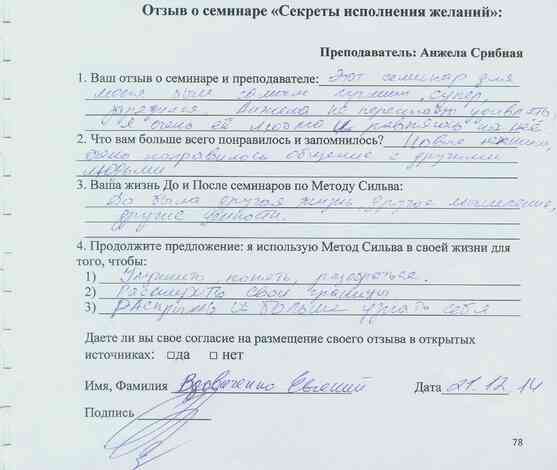 Отзыв о семинаре «Секреты исполнения желаний»:
Преподаватель: Анжела Срибная
1. Ваш отзыв о семинаре и преподавателе: Этот семинар для
меня был самым лучшим, супер,
Анжела не перестает удивлять,
я очень её люблю и равняюсь на неё
2. Что вам больше всего понравилось и запомнилось?
очень понравилось общение с другими
людьми
3. Ваша жизнь До и После семинаров по Методу Сильва:
До была другая жизнь, другое мышление,
другие ценности.
4. Продолжите предложение: я использую Метод Сильва в своей жизни для
того, чтобы:
1) Улучшить понять, разобраться.
2) Расширить свои границы
3) Раскрыть и больше узнать себя
Даете ли вы свое согласие на размещение своего отзыва в открытых
источниках: □да □ нет
Имя, Фамилия Вдовиченко Евгений Дата 21.12.14
Подпись
78